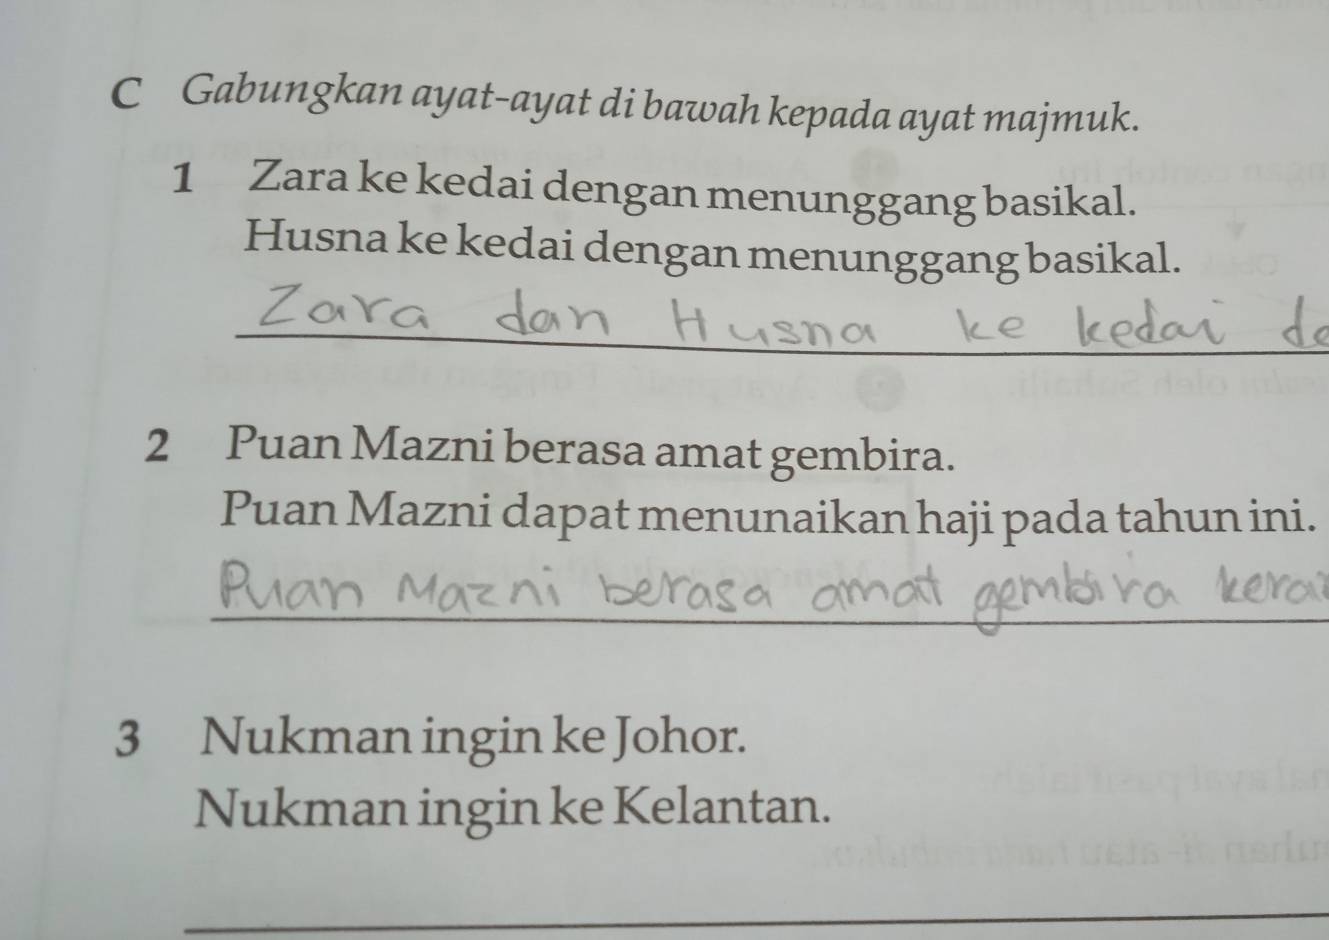 C Gabungkan ayat-ayat di bawah kepada ayat majmuk.
1 Zara ke kedai dengan menunggang basikal.
Husna ke kedai dengan menunggang basikal.
Zara dan Husna ke kedai de
2 Puan Mazni berasa amat gembira.
Puan Mazni dapat menunaikan haji pada tahun ini.
Puan Mazni berasa amat gembira kera
3 Nukman ingin ke Johor.
Nukman ingin ke Kelantan.